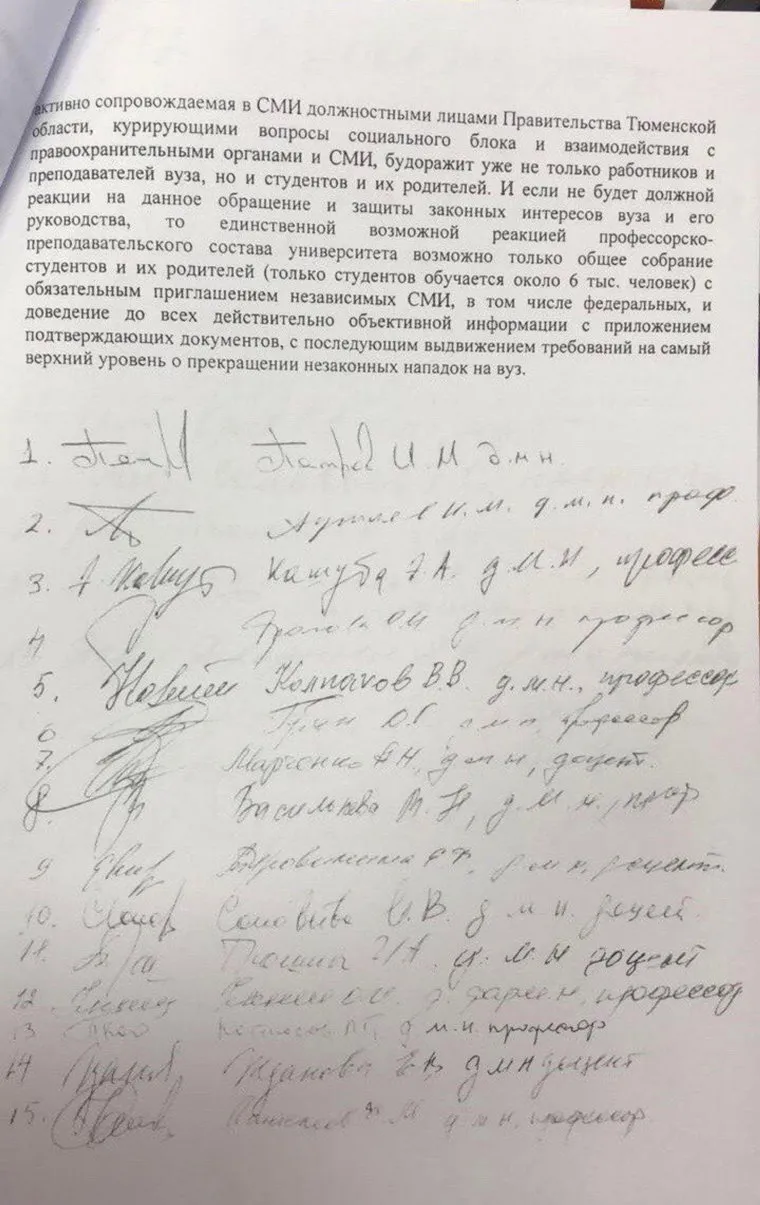 активно сопровождаемая в СМИ должностными лицами Правительства Тюменской
области, курирующими вопросы социального блока и взаимодействия с
правоохранительными органами и СМИ, будоражит уже не только работников и
преподавателей вуза, но и студентов и их родителей. И если не будет должной
реакции на данное обращение и защиты законных интересов вуза и его
руководства, то единственной возможной реакцией профессорско-
преподавательского состава университета возможно только общее собрание
студентов и их родителей (только студентов обучается около 6 тыс. человек) с
обязательным приглашением независимых СМИ, в том числе федеральных, и
доведение до всех действительно объективной информации с приложением
подтверждающих документов, с последующим выдвижением требований на самый
верхний уровень о прекращении незаконных нападок на вуз.
1. Петров И.М д.м.н.
2. Н.М. д.м.н. проф.
3. Кашуба Э.А. д.м.н, професс
4 д.м.н профессор
5. Колпаков В.В. д.м.н., профессор
6 профессор
7. Марченко А.Н., д.м.н, доцент.
8. Василькова д.м.н.,
9 д.м.н. доцент.
10. Соловьева С.В. д.м.н. доцент.
11. д.м.н доцент
12 О.И. профессор
13 д.м.н. профессор
14 Жданова Е.В д.м.н доцент
15. д.м.н, профессор